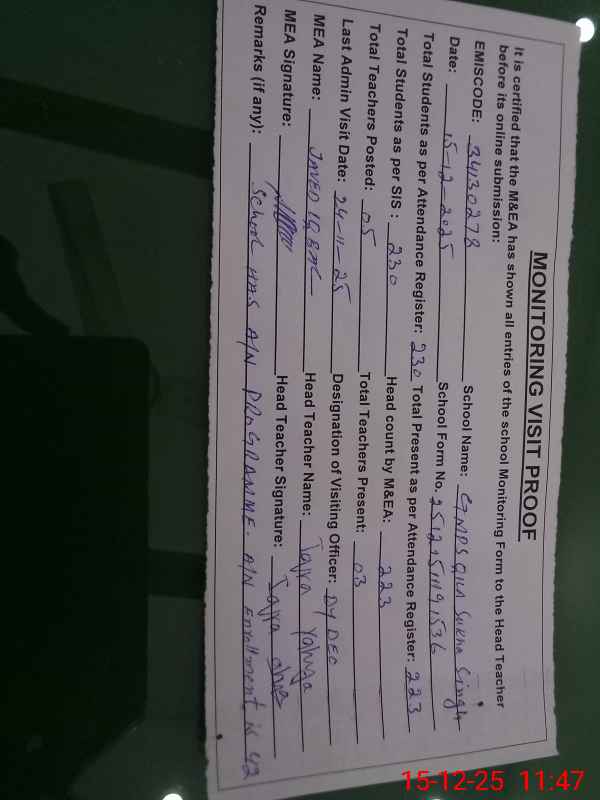 MONITORING VISIT PROOF
It is certified that the M&EA has shown all entries of the school Monitoring Form to the Head Teacher
before its online submission:
EMISCODE: 34130278 School Name: GMPS QILA Sukha Singh
Date: 15-12-2025 School Form No.
Total Students as per Attendance Register: 230 Total Present as per Attendance Register: 223
Total Students as per SIS : 230 Head count by M&EA: 223
Total Teachers Posted: 05 Total Teachers Present: 03
Last Admin Visit Date: 24-11-25 Designation of Visiting Officer: Dy DEO
MEA Name: JAVED IQBAL Head Teacher Name:
MEA Signature: Head Teacher Signature:
Remarks (if any): School HAS A/N PROGRAMME. A/N Enrollment is 42
15-12-25 11:47